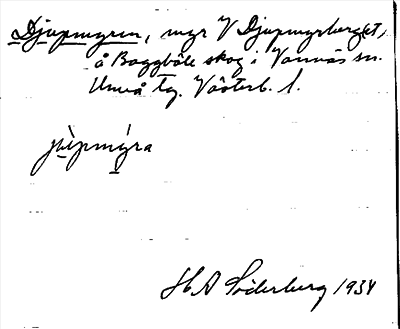 Djupmyren, myr V Djupmyrberget,
å Baggböle skog i Vännäs sn.
Umeå tg. Västerb. l.
jùpmýra
H A Söderberg 1934